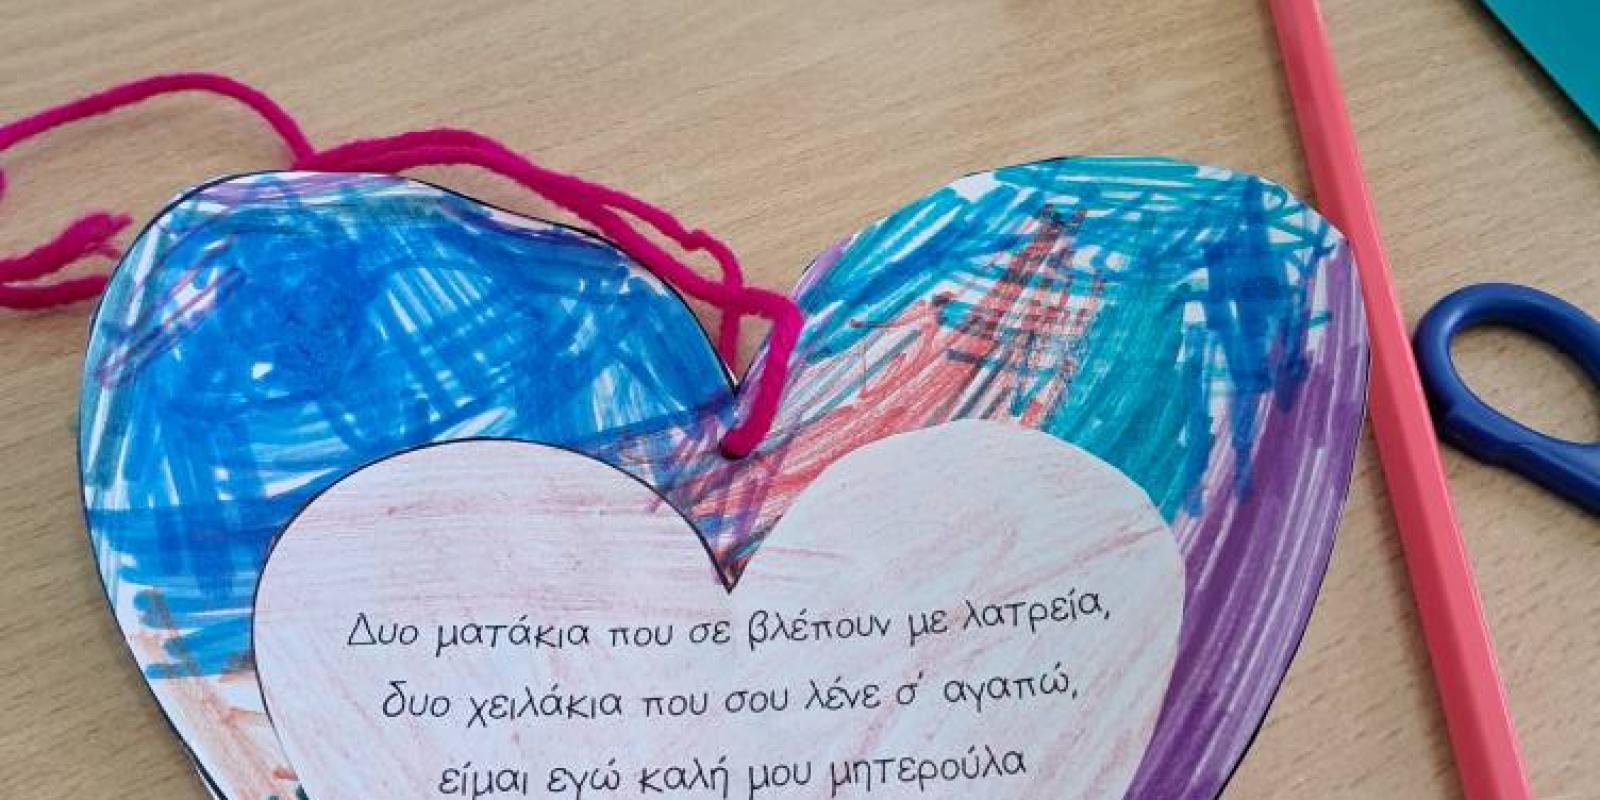 Δυο ματάκια που σε βλέπουν με λατρεία,
δυο χειλάκια που σου λένε σ' αγαπώ,
είμαι εγώ καλή μου μητερούλα